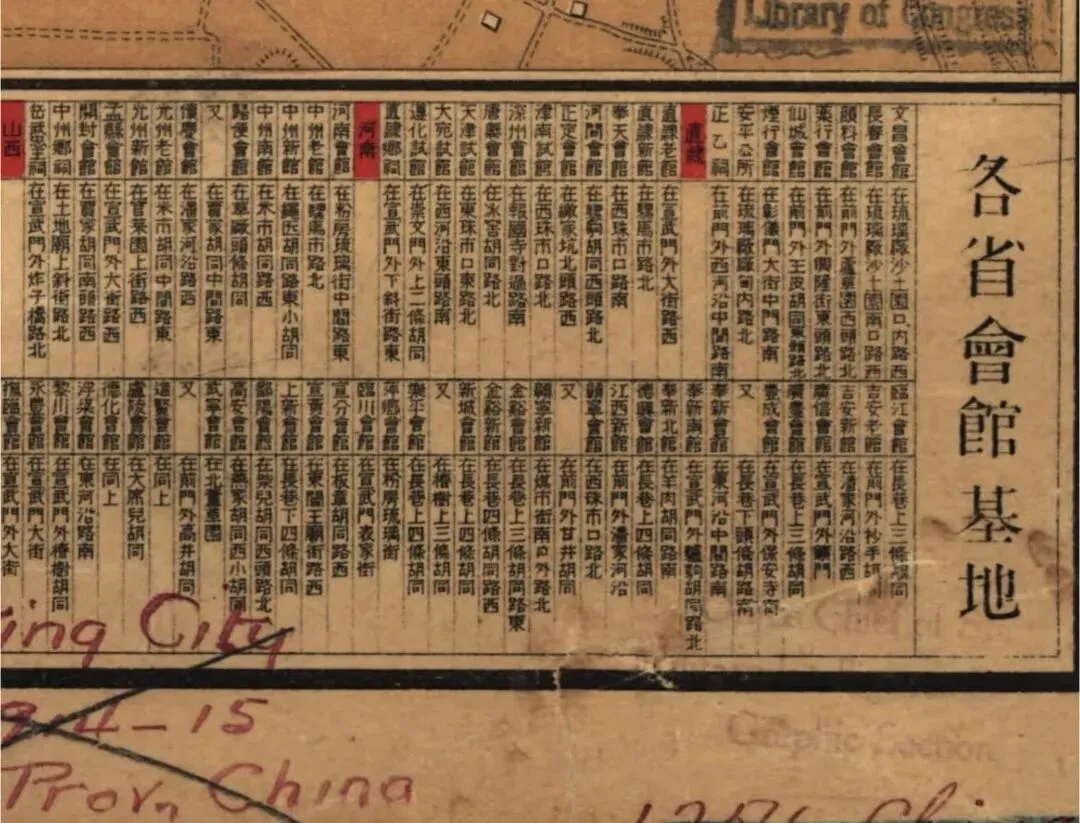 各省會館基地
文昌會館 在琉璃廠沙土園口內路西
長春會館 在琉璃廠沙土園南口路西
顏料會館 在前門外蘆草園西頭路北
藥行會館 在前門外興隆街東頭路北
仙城會館 在前門外王皮胡同東頭路北
煙行會館 在彰儀門大街中門路南
安平公所 在琉璃廠廠甸內路北
正乙祠 在前門外西河沿中間路南
直隸
直隸老館 在宣武門外大街路西
直隸新館 在騾馬市路北
奉天會館 在西珠市口路南
河間會館 在驢駒胡同西頭路北
正定會館 家坑北頭路西
津南試館 在西珠市口路北
深州會館 在報國寺對過路南
唐縣會館 在冰窖胡同路北
天津試館 在東珠市口東路北
大宛試館 在西河沿東頭路南
遵化試館 在崇文門外上二條胡同
直隸鄉祠 在宣武門外下斜街路東
河南
河南會館 在粉房琉璃街中間路東
中州老館 在騾馬市路北
中州新館 在繩匠胡同路東小胡同
中州南館 在米市胡同路西
歸德會館 在草廠頭條胡同
又 在賈家胡同中間路東
懷慶會館 在潘家河沿路西
光州老館 在米市胡同中間路東
光州新館 在官菜園上街路西
孟縣會館 在宣武門外大街路西
開封會館 在賈家胡同南頭路西
中州鄉祠 在土地廟上斜街路北
在宣武門外炸子橋路北
山西
臨江會館 在長巷上三條胡同
吉安老館 在前門外抄手胡同
吉安新館 在潘家河沿路西
廣信會館 在宣武門外
在長巷上三條胡同
豐城會館 在宣武門外保安寺街
又 在長巷下頭條胡路南
奉新會館 在東河沿中間路南
奉新南館 在宣武門外驢駒胡同路北
奉新北館 在羊肉胡同路南
德興會館 在長巷上四條胡同
江西新館 在前門外潘家河沿
在西珠市口路北
又 在前門外甘井胡同
在煤市街南口外路北
金谿會館 在長巷上三條胡同路東
金谿新館 在長巷四條胡同路西
新城會館 在長巷上四條胡同
又 在椿樹上三條胡同
樂平會館 在長巷上四條胡同
萍鄉會館 在粉房琉璃街
臨川會館 在宣武門表家街
宣分會館 在板章胡同路西
宣黃會館 在東閻王廟街路西
上新會館 在長巷下四條胡同
鄱陽會館 在柴兒胡同西頭路北
高安會館 在燕家胡同西小胡同
武寧會館 在北蘆草園
又 在前門外高井胡同
進賢會館 在同上
廬陵會館 在大席兒胡同
德化會館 在同上
浮梁會館 在東河沿路南
黎川會館 在宣武門外椿樹胡同
永豐會館 在宣武門大街
撫臨會館 在宣武門外大街
Library of Congress
ing City
914-15
Prov, China
Graphic Section